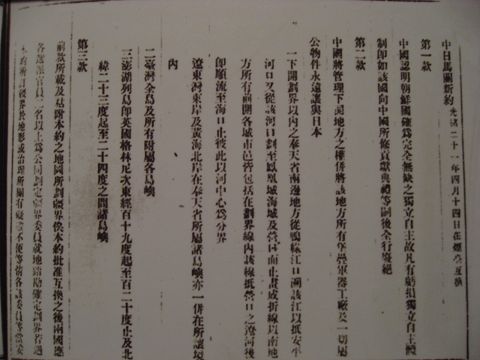 中日馬關新約 光緒二十一年四月十四日在煙臺互換
第一款
中國認明朝鮮國確爲完全無缺之獨立自主故凡有虧損獨立自主體
制即如該國向中國所修貢獻典禮等嗣後全行廢絕
第二款
中國將管理下開地方之權併將該地方所有堡壘軍器工廠及一切屬
公物件永遠讓與日本
一下開劃界以內之奉天省南邊地方從鴨綠江口溯該江抵安平
河口又從該河口劃至鳳凰城海城及營口而止畫成折線以南地
方所有前開各城市邑皆包括在劃界線內該線抵營口之遼河後
即順流至海口止彼此以河中心爲分界
遼東灣東岸及黃海北岸在奉天省所屬諸島嶼亦一併在所讓境
內
二臺灣全島及所有附屬各島嶼
三澎湖列島即英國格林尼次東經百十九度起至百二十度止及北
緯二十三度起至二十四度之間諸島嶼
第三款
前款所載及粘附本約之地圖所劃疆界俟本約批准互換之後兩國應
各選派官員二名以上爲公同劃定疆界委員就地踏勘確定劃界若遇
本約所訂疆界於地形或治理所關有礙難不便等情各該委員等當妥